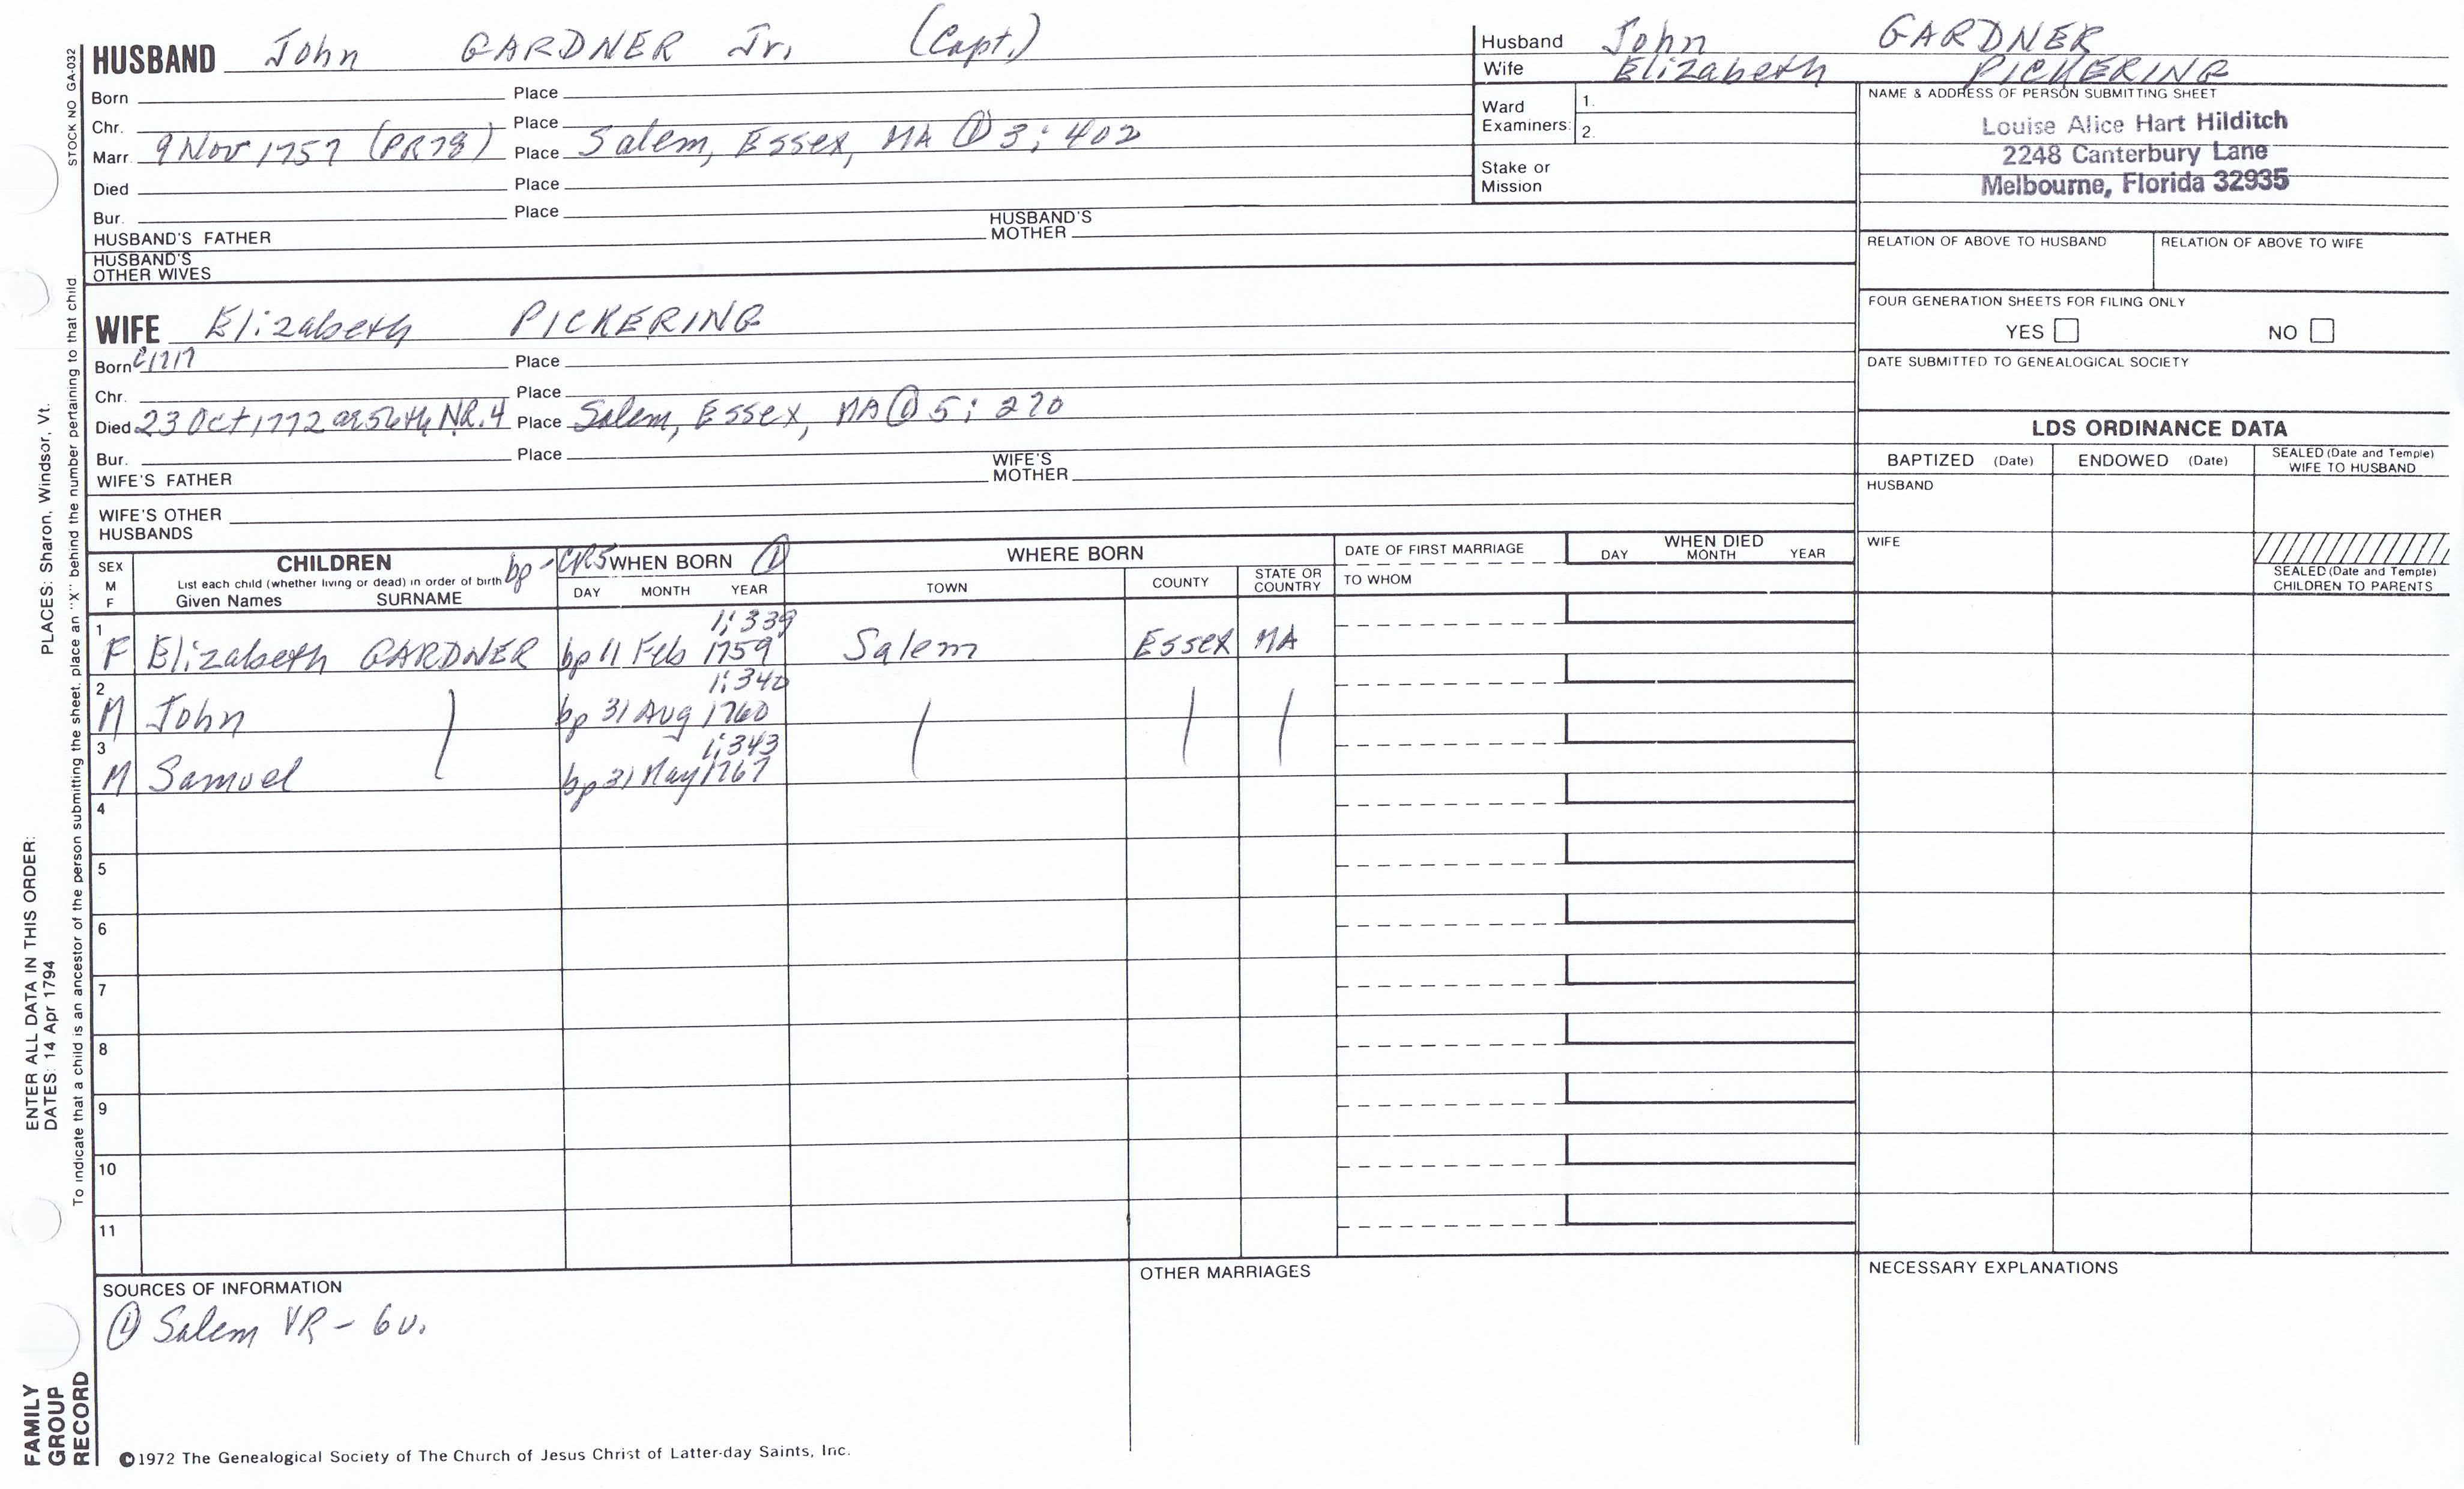 HUSBAND John GARDNER Jr. (Capt.)
Born Place
Chr. Place
Marr. 9 Nov 1757 (PR78) Place Salem, Essex, MA ① 3: 402
Died Place
Bur. Place
HUSBAND'S FATHER HUSBAND'S MOTHER
HUSBAND'S OTHER WIVES
Husband John GARDNER
Wife Elizabeth PICKERING
Ward Examiners: 1.
2.
Stake or Mission
NAME & ADDRESS OF PERSON SUBMITTING SHEET
Louise Alice Hart Hilditch
2248 Canterbury Lane
Melbourne, Florida 32935
RELATION OF ABOVE TO HUSBAND RELATION OF ABOVE TO WIFE
FOUR GENERATION SHEETS FOR FILING ONLY
YES NO
DATE SUBMITTED TO GENEALOGICAL SOCIETY
WIFE Elizabeth PICKERING
Born c1717 Place
Chr. Place
Died 23 Oct 1772 56th NR.4 Place Salem, Essex, MA ① 5: 270
Bur. Place
WIFE'S FATHER WIFE'S MOTHER
WIFE'S OTHER HUSBANDS
LDS ORDINANCE DATA
BAPTIZED (Date) ENDOWED (Date) SEALED (Date and Temple) WIFE TO HUSBAND
HUSBAND
WIFE
SEALED (Date and Temple) CHILDREN TO PARENTS
SEX M F
CHILDREN
List each child (whether living or dead) in order of birth
Given Names SURNAME
bp - CR5 WHEN BORN ①
DAY MONTH YEAR
WHERE BORN
TOWN COUNTY STATE OR COUNTRY
DATE OF FIRST MARRIAGE
TO WHOM
WHEN DIED
DAY MONTH YEAR
1: 339
1 F Elizabeth GARDNER bp 11 Feb 1759 Salem Essex MA
1: 340
2 M John bp 31 Aug 1760
1: 343
3 M Samuel bp 31 May 1767
4
5
6
7
8
9
10
11
SOURCES OF INFORMATION
① Salem VR - 6v.
OTHER MARRIAGES
NECESSARY EXPLANATIONS
©1972 The Genealogical Society of The Church of Jesus Christ of Latter-day Saints, Inc.
STOCK NO GA-032
To indicate that a child is an ancestor of the person submitting the sheet, place an "X" behind the number pertaining to that child
ENTER ALL DATA IN THIS ORDER: PLACES: Sharon, Windsor, Vt.
DATES: 14 Apr 1794
FAMILY
GROUP
RECORD